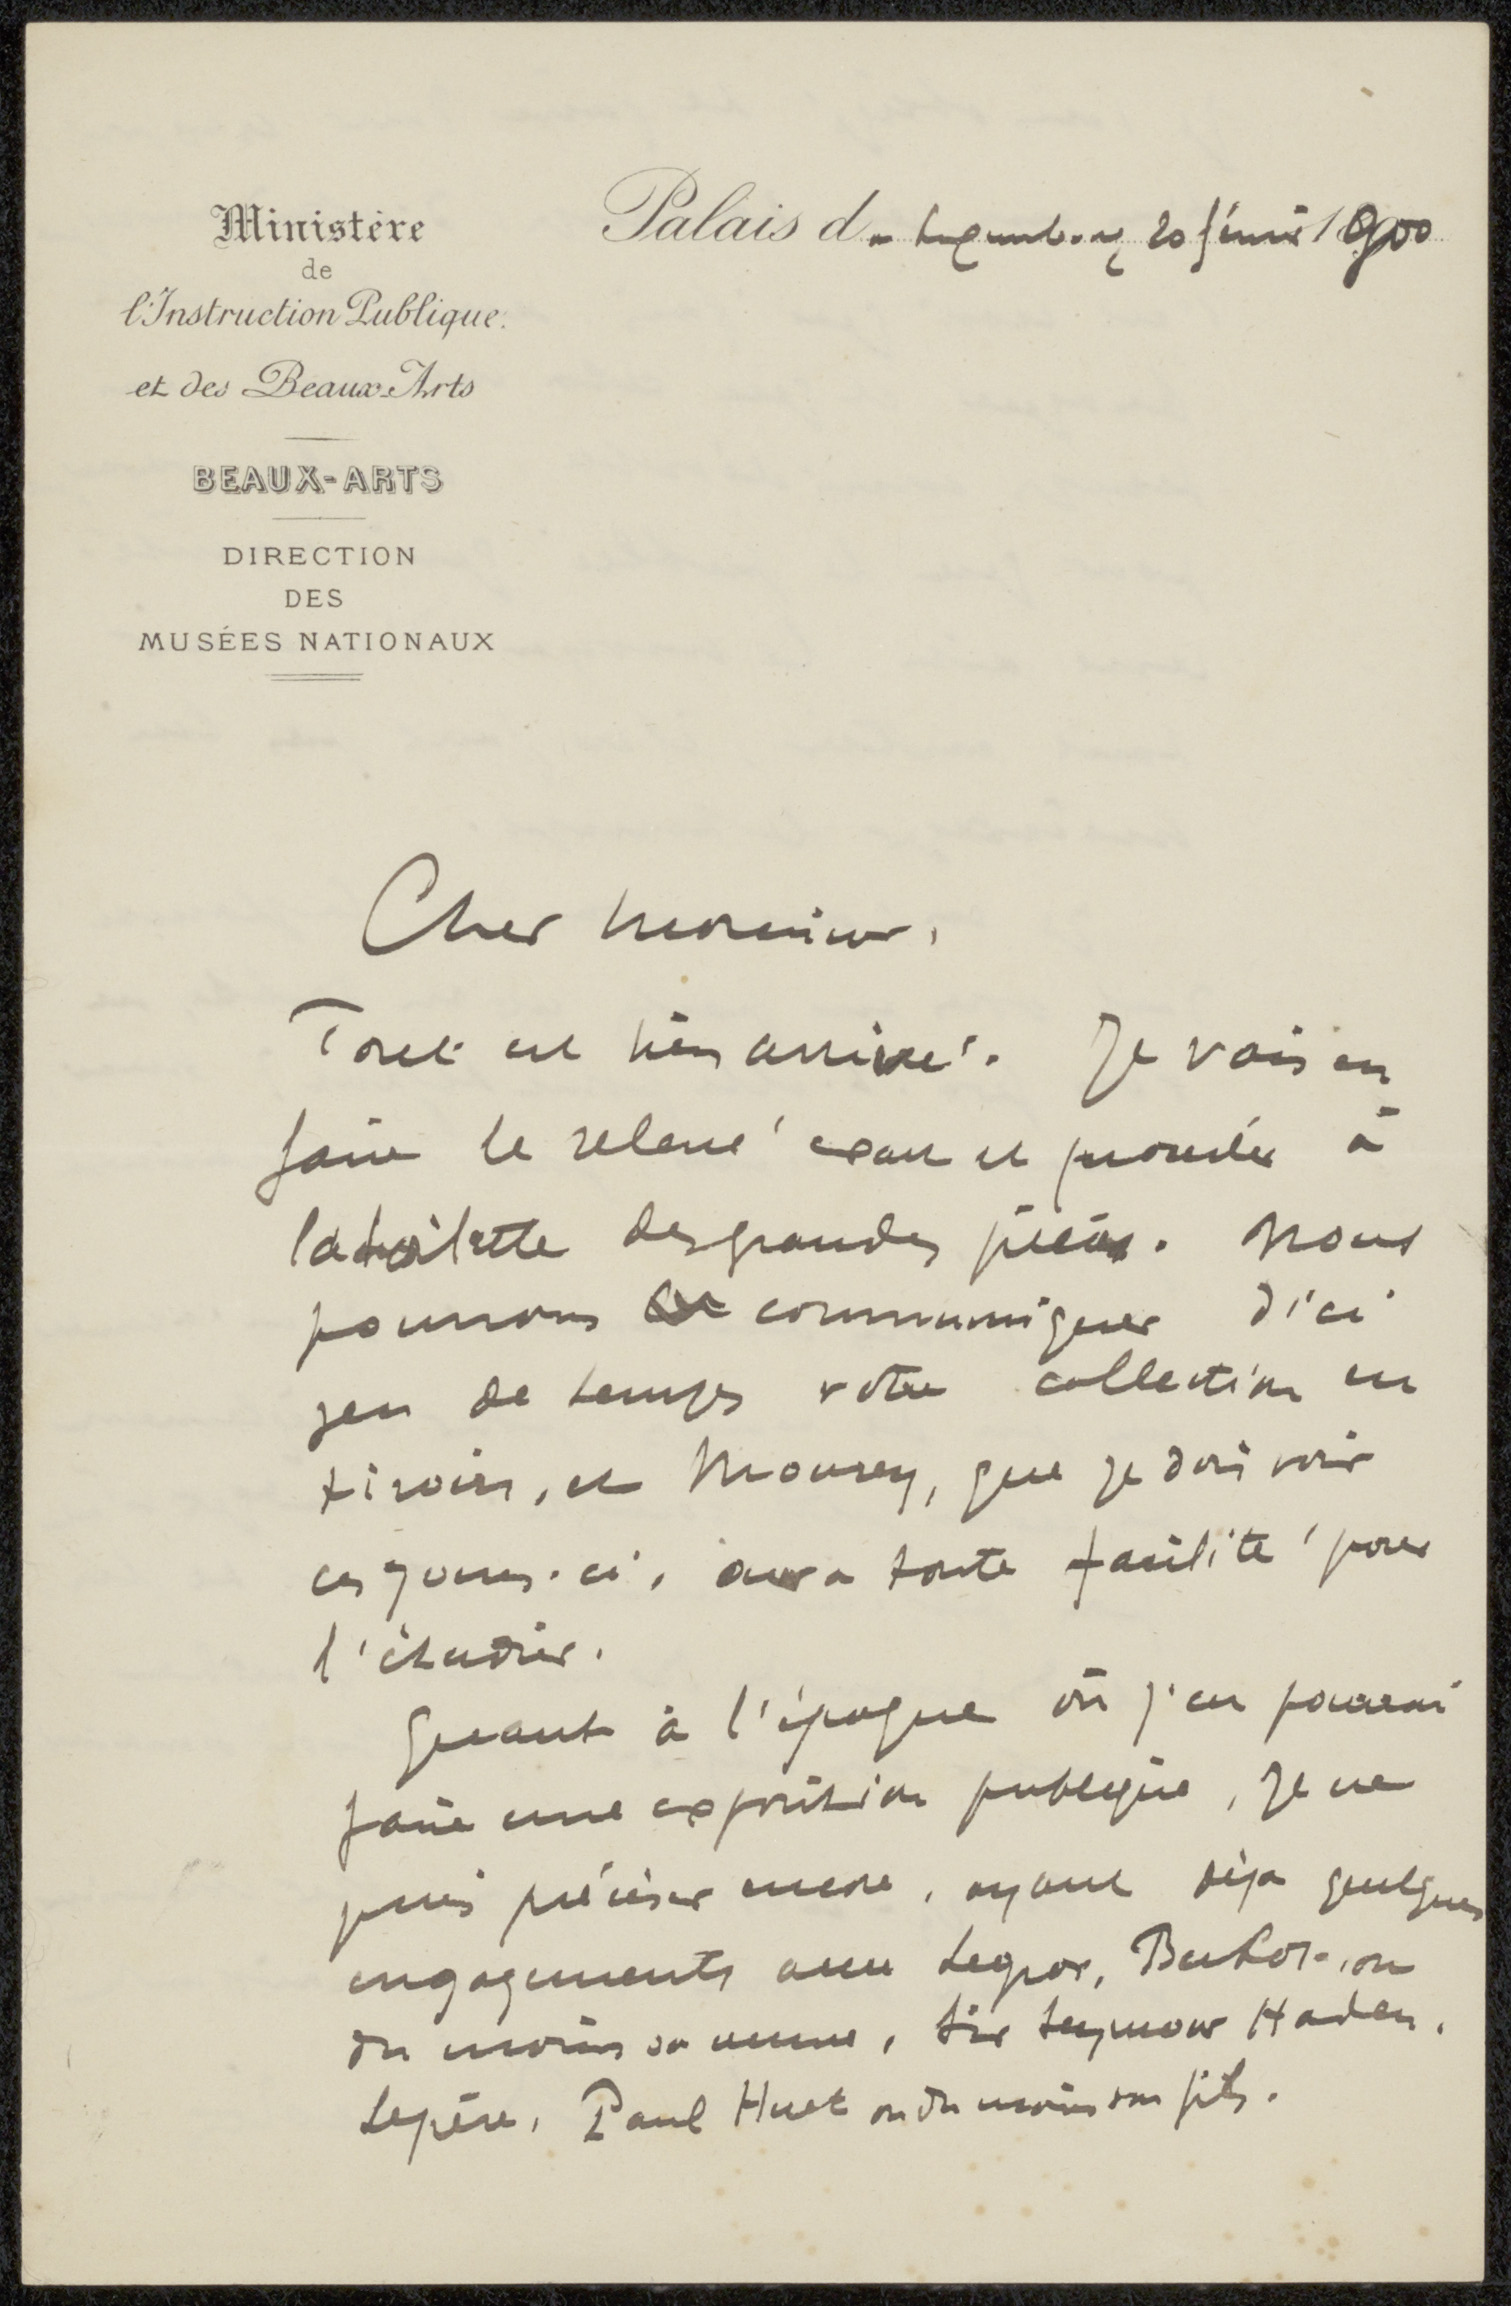 Ministère
de
l'Instruction Publique.
et des Beaux-Arts
BEAUX-ARTS
DIRECTION
DES
MUSÉES NATIONAUX
Palais du Luxembourg 20 février 1900
Cher Monsieur,
Tout est bien arrivé. Je vais en
faire le relevé exact et procéder à
la toilette des grandes pièces. Nous
pourrons communiquer d'ici
peu de temps votre collection en
tiroirs, et Mourey, que je dois voir
ces jours-ci, aura toute facilité pour
l'étudier.
Quant à l'époque où j'en pourrai
faire une exposition publique, je ne
puis préciser encore, ayant déjà quelques
engagements avec Legros, Buhot, ou
du moins sa veuve, Sir Seymour Haden,
Lepère, Paul Huet ou du moins son fils.